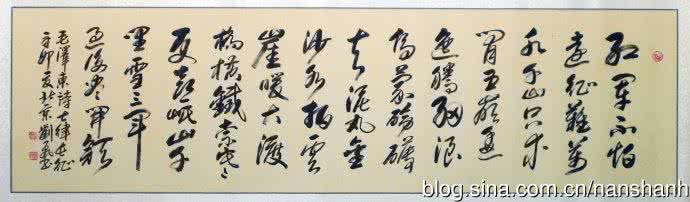 紅軍不怕
遠征難萬
水千山只等
閒五嶺逶
迤騰細浪
烏蒙磅礴
走泥丸金
沙水拍雲
崖暖大渡
橋橫鐵索寒
更喜岷山千
里雪三軍
過後盡開顏
毛澤東詩七律長征
辛卯夏北京劉書
blog.sina.com.cn/nanshanh